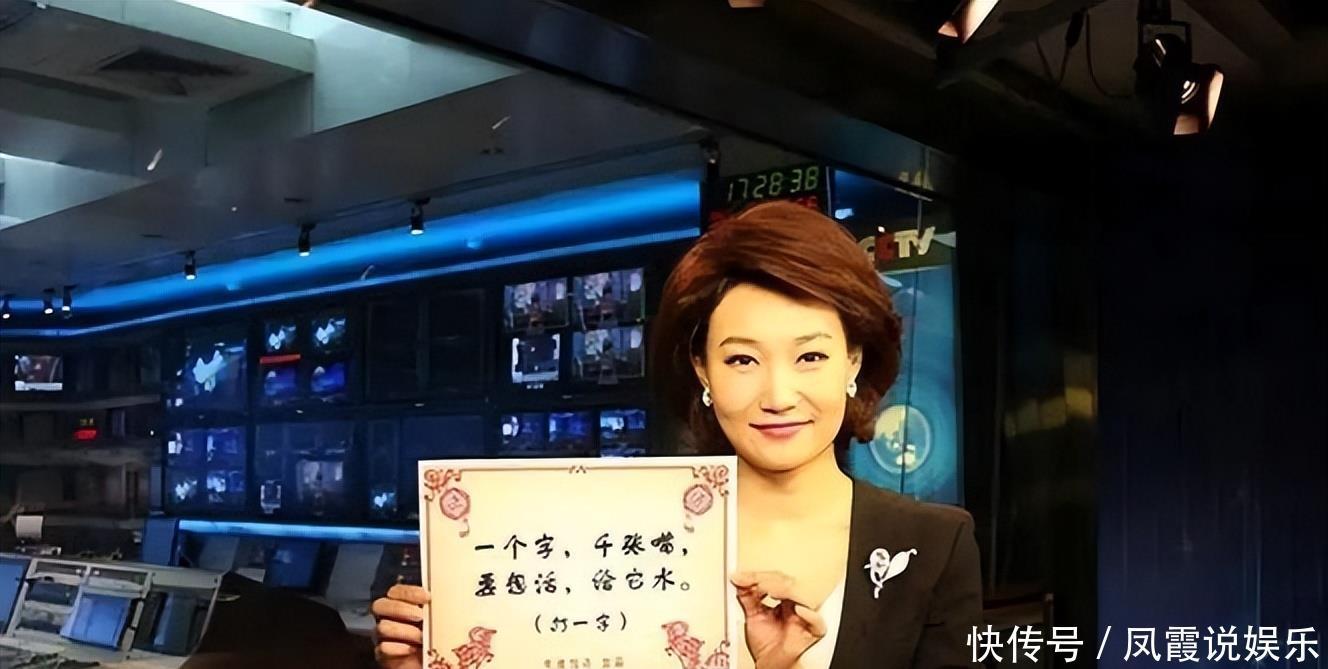 17:28:38
CCTV
一个字，千张嘴，
要想活，给它水。
（打一字）
快传号 / 凤霞说娱乐